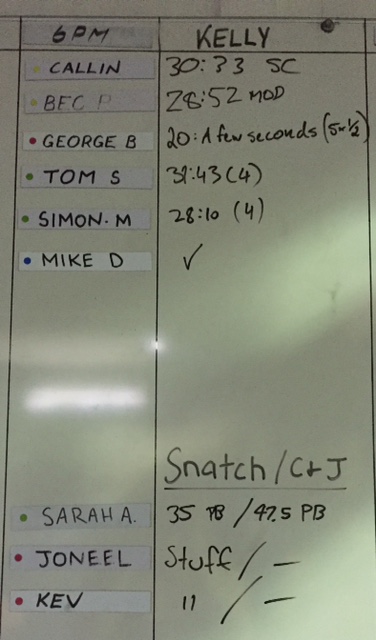 6PM KELLY
CALLIN 30:33 SC
BEC P 28:52 MOD
GEORGE B 20: A few seconds (5×½)
TOM S 31:43 (4)
SIMON. M 28:10 (4)
MIKE D ✓
Snatch / C+J
SARAH A. 35 PB / 47.5 PB
JONEEL Stuff / —
KEV " / —